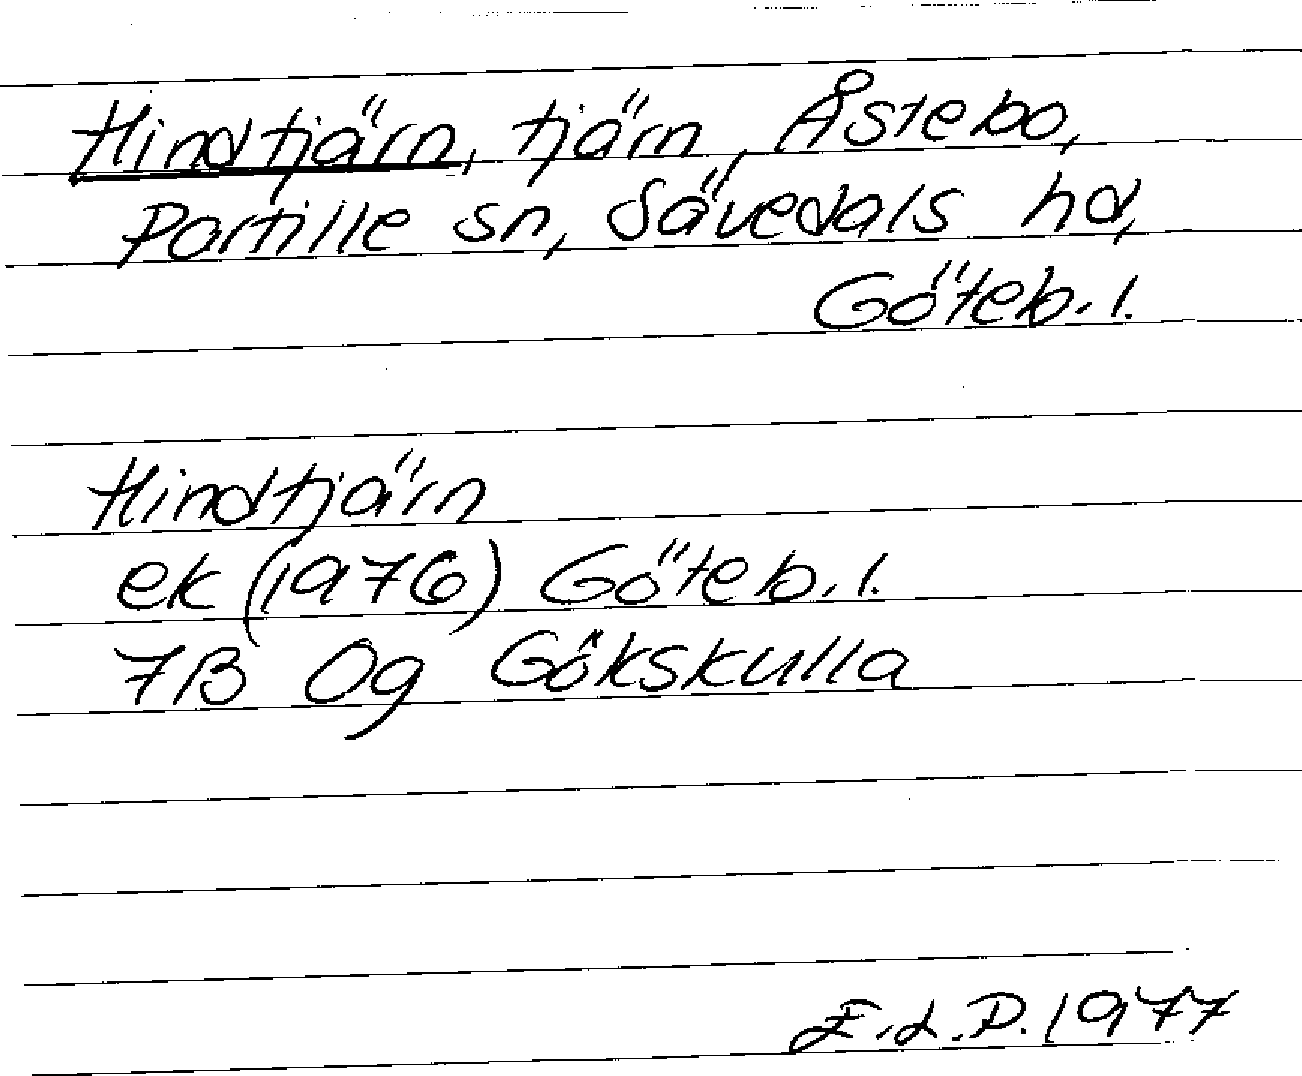 Hindtjärn, tjärn, Åstebo,
Partille sn, Sävedals hd,
Göteb. l.
Hindtjärn
ek (1976) Göteb. l.
7B 0g Gökskulla
E.L.P. 1977